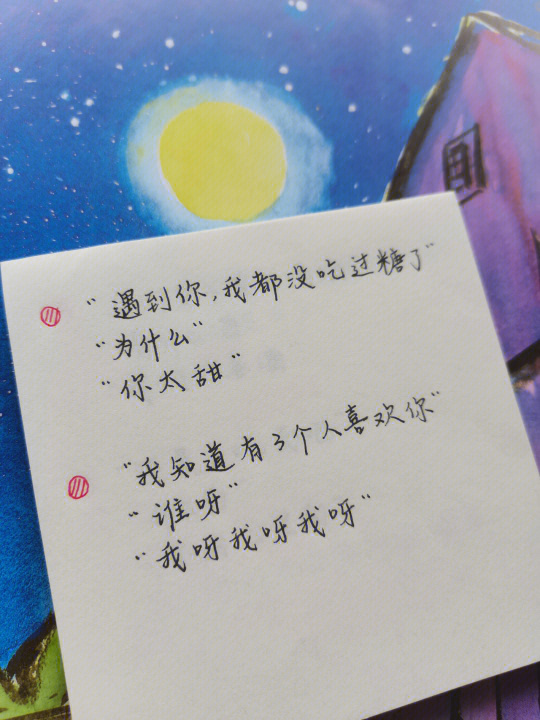 "遇到你,我都没吃过糖了"
"为什么"
"你太甜"
"我知道有3个人喜欢你"
"谁呀"
"我呀我呀我呀"